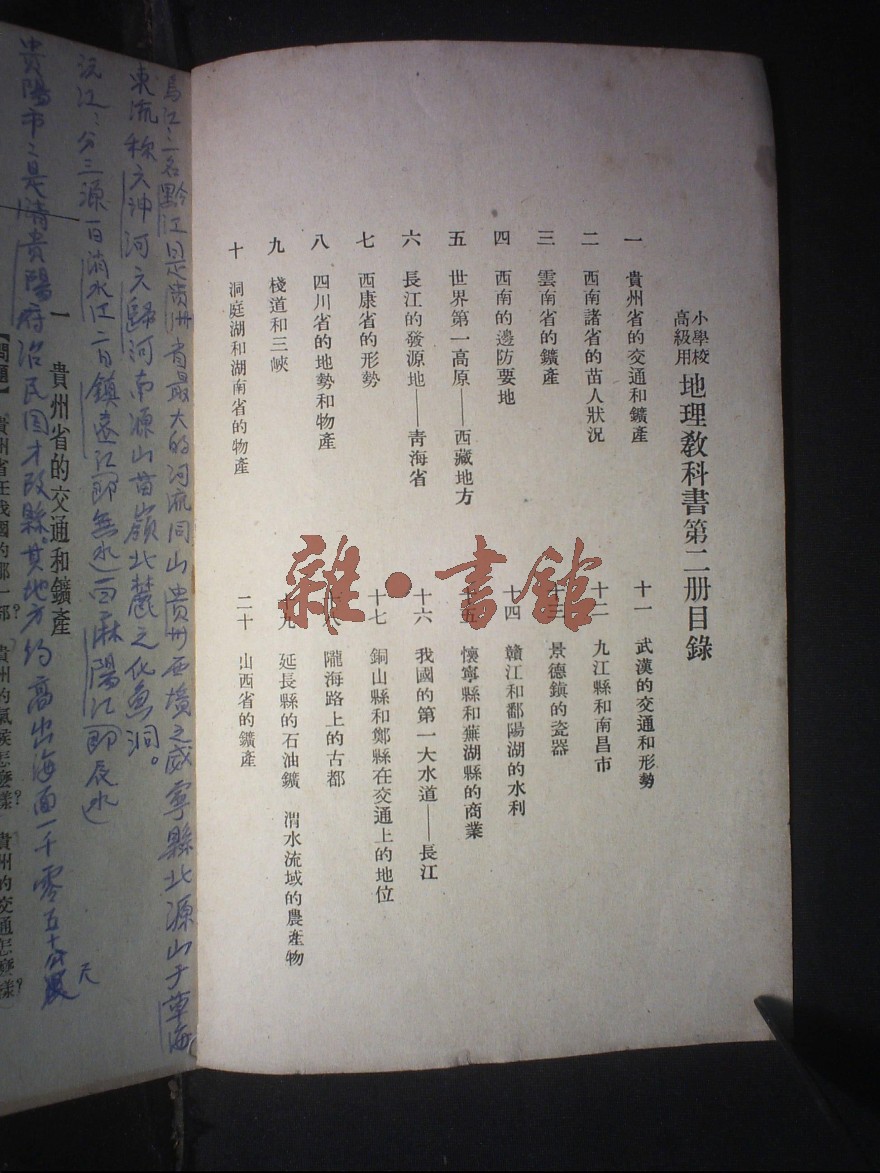 小學校
高級用
地理敎科書第二册目錄
一 貴州省的交通和鑛產
二 西南諸省的苗人狀況
三 雲南省的鑛產
四 西南的邊防要地
五 世界第一高原——西藏地方
六 長江的發源地——青海省
七 西康省的形勢
八 四川省的地勢和物產
九 棧道和三峽
十 洞庭湖和湖南省的物產
十一 武漢的交通和形勢
十二 九江縣和南昌市
十三 景德鎮的瓷器
十四 贛江和鄱陽湖的水利
十五 懷寧縣和蕪湖縣的商業
十六 我國的第一大水道——長江
十七 銅山縣和鄭縣在交通上的地位
十八 隴海路上的古都
十九 延長縣的石油鑛 渭水流域的農產物
二十 山西省的鑛產
雜·書館
烏江:一名黔江曰是貴州省最大的河流同山貴州西境之威寧縣北源山于草海
東流称六冲河六歸河南源山苗嶺北麓之化魚洞。
沅江:分三源一曰清水江二曰鎮遠江即無水 麻陽江即辰水
一 貴州省的交通和鑛產
貴陽市:是清貴陽府治民国才改縣其地方约高出海面一千零五十公尺
天
【問題】 貴州省在我國的那一部? 貴州的氣候怎麽樣? 貴州的交通怎麽樣?